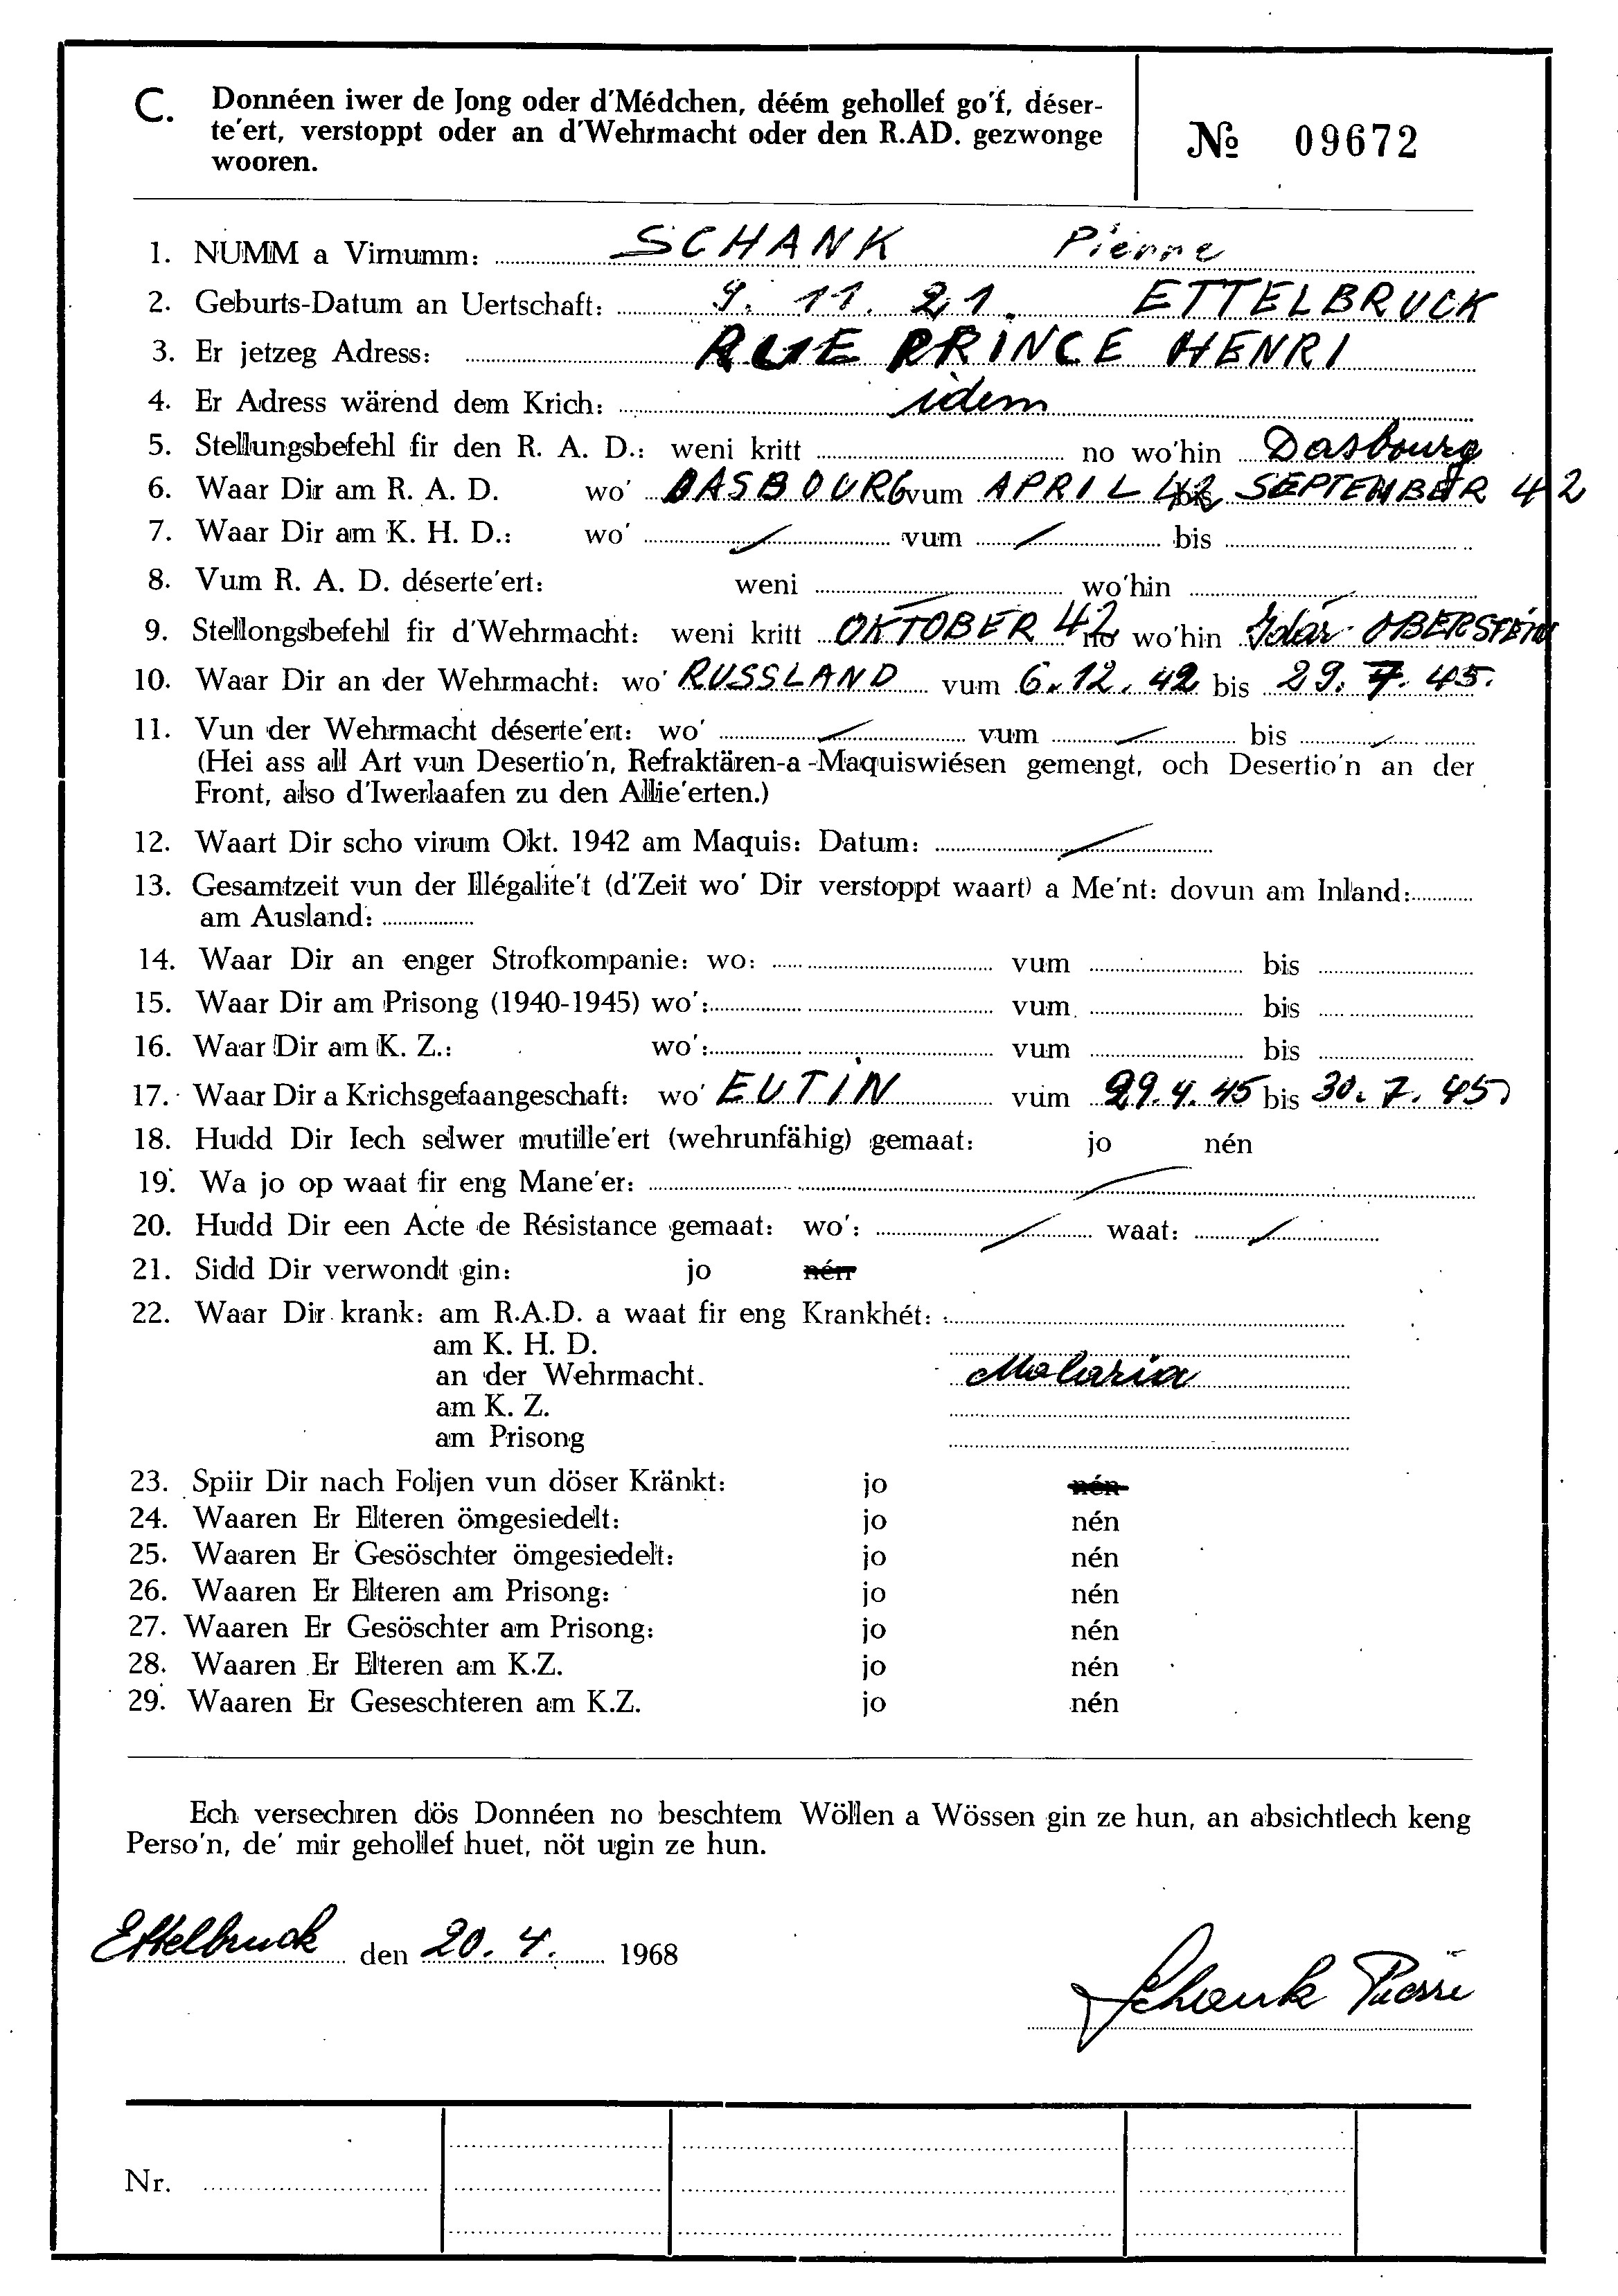 C. Donnéen iwer de Jong oder d'Médchen, déém gehollef go'f, déser-
te'ert, verstoppt oder an d'Wehrmacht oder den R.AD. gezwonge
wooren.
№ 09672
1. NUMM a Virnumm: SCHANK Pierre
2. Geburts-Datum an Uertschaft: 9. 11. 21. ETTELBRUCK
3. Er jetzeg Adress: RUE PRINCE HENRI
4. Er Adress wärend dem Krich: idem
5. Stellungsbefehl fir den R. A. D.: weni kritt no wo'hin Dasbourg
6. Waar Dir am R. A. D. wo' DASBOURG vum APRIL 42 bis SEPTEMBER 42
7. Waar Dir am K. H. D.: wo' / vum / bis
8. Vum R. A. D. déserte'ert: weni wo'hin
9. Stellongsbefehl fir d'Wehrmacht: weni kritt OKTOBER 42 no wo'hin Idar OBERSTEIN
10. Waar Dir an der Wehrmacht: wo' RUSSLAND vum 6.12.42 bis 29.7.45.
11. Vun der Wehrmacht déserte'ert: wo' / vum / bis /
(Hei ass all Art vun Desertio'n, Refraktären-a-Maquiswiésen gemengt, och Desertio'n an der
Front, also d'Iwerlaafen zu den Allie'erten.)
12. Waart Dir scho virum Okt. 1942 am Maquis: Datum: /
13. Gesamtzeit vun der Illégalite't (d'Zeit wo' Dir verstoppt waart) a Me'nt: dovun am Inland:
am Ausland:
14. Waar Dir an enger Strofkompanie: wo: vum bis
15. Waar Dir am Prisong (1940-1945) wo': vum bis
16. Waar Dir am K. Z.: wo': vum bis
17. Waar Dir a Krichsgefaangeschaft: wo' EUTIN vum 29.4.45 bis 30.7.45
18. Hudd Dir Iech selwer mutille'ert (wehrunfähig) gemaat: jo nén
19. Wa jo op waat fir eng Mane'er: /
20. Hudd Dir een Acte de Résistance gemaat: wo': / waat: /
21. Sidd Dir verwondt gin: jo nén
22. Waar Dir krank: am R.A.D. a waat fir eng Krankhét:
am K. H. D.
an der Wehrmacht. Malaria
am K. Z.
am Prisong
23. Spiir Dir nach Foljen vun döser Kränkt: jo nén
24. Waaren Er Elteren ömgesiedelt: jo nén
25. Waaren Er Gesöschter ömgesiedelt: jo nén
26. Waaren Er Elteren am Prisong: jo nén
27. Waaren Er Gesöschter am Prisong: jo nén
28. Waaren Er Elteren am K.Z. jo nén
29. Waaren Er Geseschteren am K.Z. jo nén
Ech versechren dös Donnéen no beschtem Wöllen a Wössen gin ze hun, an absichtlech keng
Perso'n, de' mir gehollef huet, nöt ugin ze hun.
Ettelbruck den 20. 4. 1968
Schank Pierre
Nr.